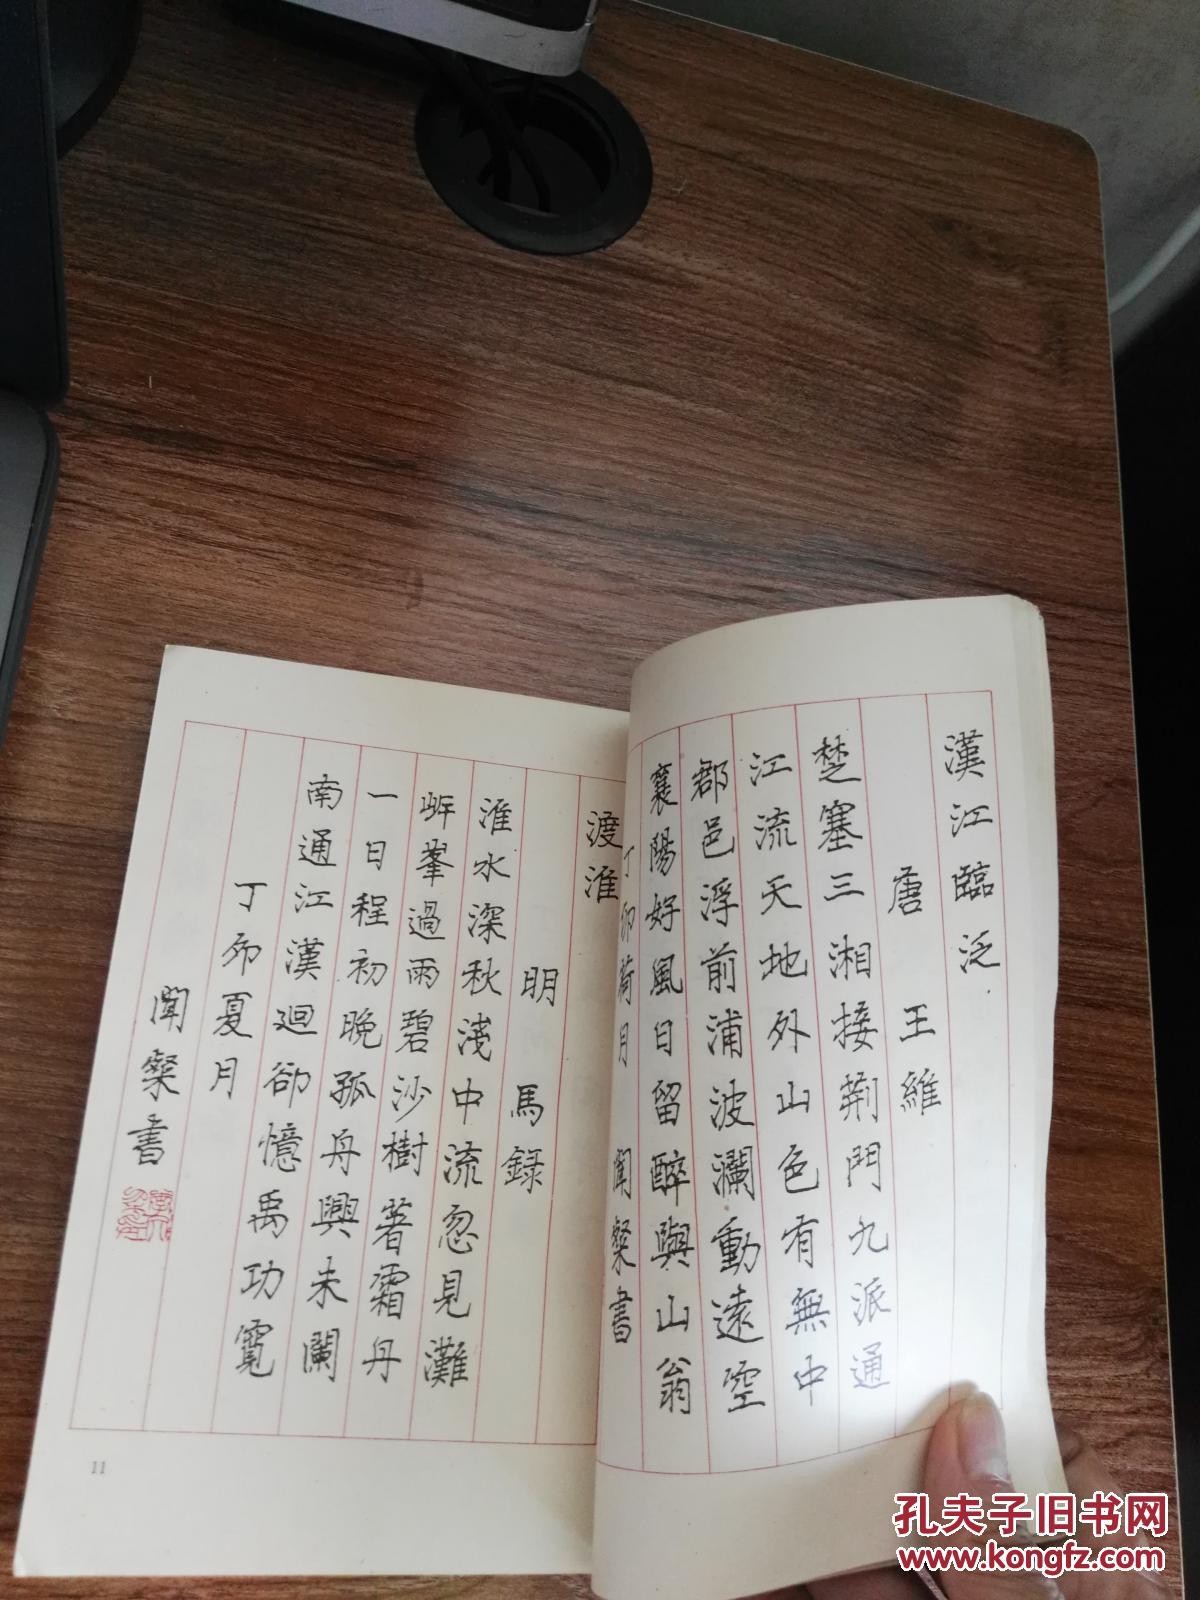 漢江臨泛
唐 王維
楚塞三湘接荆門九派通
江流天地外山色有無中
郡邑浮前浦波瀾動遠空
襄陽好風日留醉與山翁
丁卯荷月 聞粲書
渡淮
明 馬錄
淮水深秋淺中流忽見灘
㟁峯過雨碧沙樹著霜丹
一日程初晚孤舟興未闌
南通江漢迴卻憶禹功寬
丁卯夏月
聞粲書
11
孔夫子旧书网
www.kongfz.com